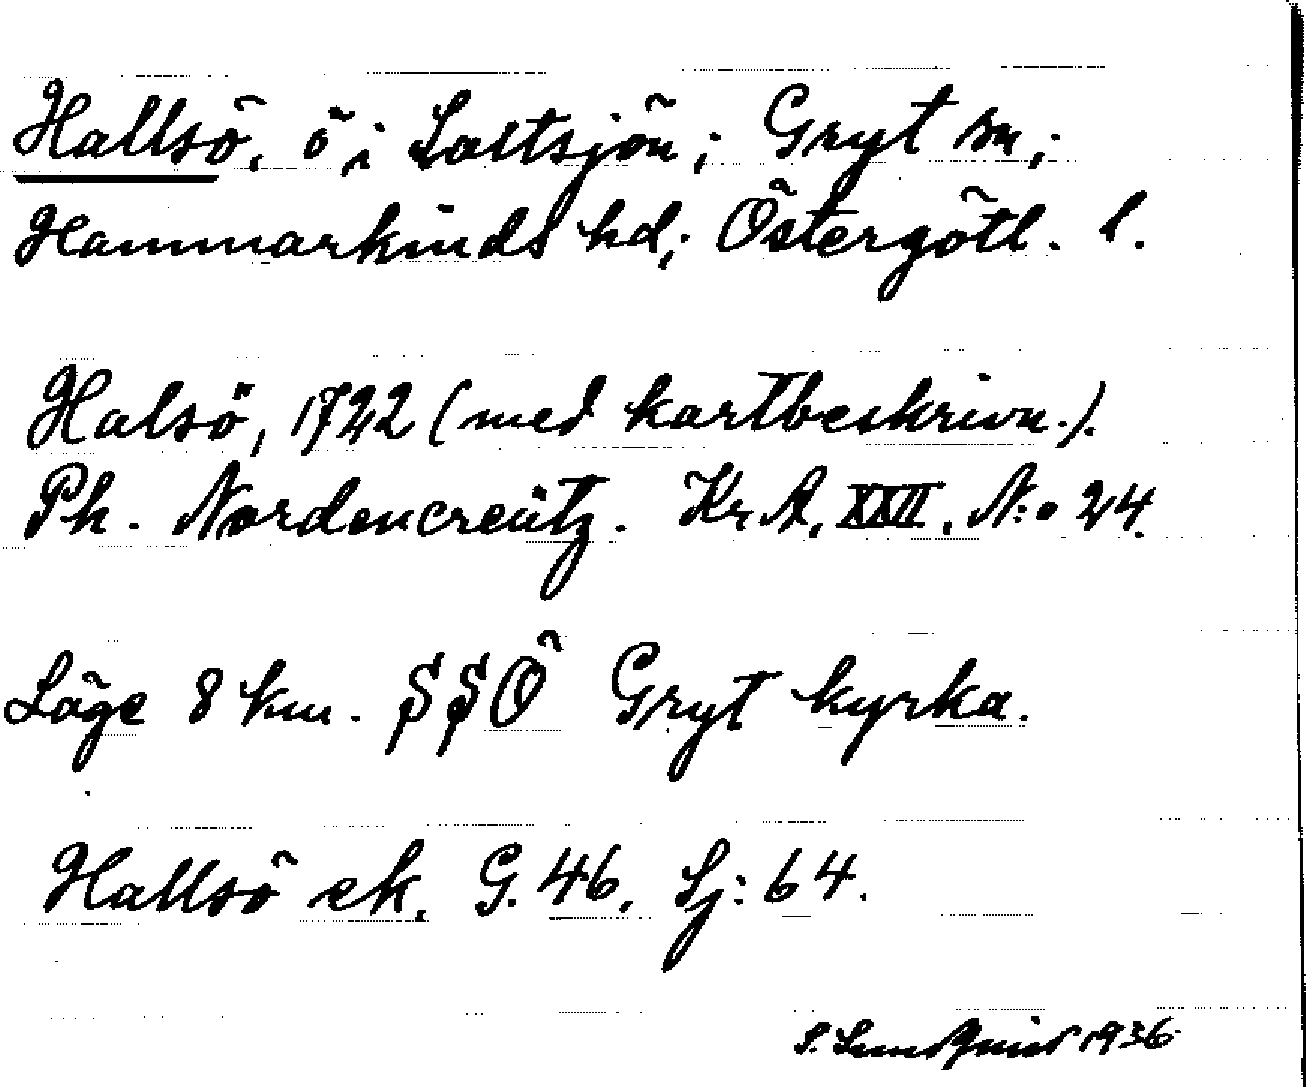 Hallsö, ö i Saltsjön; Gryt sn;
Hammarkinds hd; Östergötl. l.
Halsö, 1722 (med kartbeskrivn.).
Ph. Nordencreütz. Kr. A. XXII. N:o 24.
Läge 8 km. SSÖ Gryt kyrka.
Hallsö ek. G. 46. Sj: 64.
S. Sundquist 1936